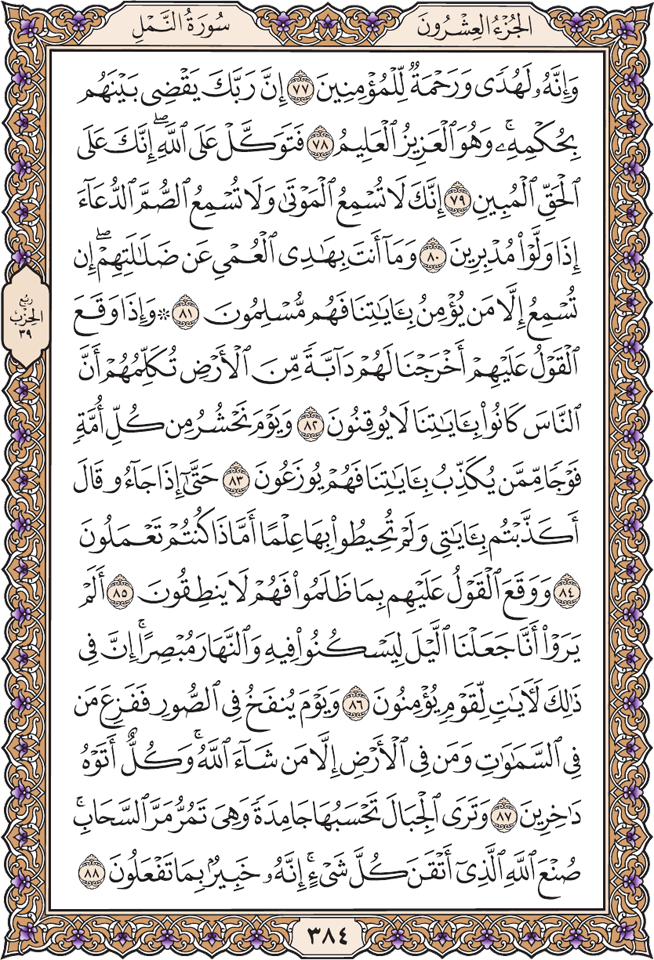 الجُزْءُ العِشْرُونَ
سُورَةُ النَّمْلِ
وَإِنَّهُۥ لَهُدٗى وَرَحۡمَةٞ لِّلۡمُؤۡمِنِينَ ٧٧ إِنَّ رَبَّكَ يَقۡضِي بَيۡنَهُم
بِحُكۡمِهِۦۚ وَهُوَ ٱلۡعَزِيزُ ٱلۡعَلِيمُ ٧٨ فَتَوَكَّلۡ عَلَى ٱللَّهِۖ إِنَّكَ عَلَى
ٱلۡحَقِّ ٱلۡمُبِينِ ٧٩ إِنَّكَ لَا تُسۡمِعُ ٱلۡمَوۡتَىٰ وَلَا تُسۡمِعُ ٱلصُّمَّ ٱلدُّعَآءَ
إِذَا وَلَّوۡاْ مُدۡبِرِينَ ٨٠ وَمَآ أَنتَ بِهَٰدِي ٱلۡعُمۡيِ عَن ضَلَٰلَتِهِمۡۖ إِن
تُسۡمِعُ إِلَّا مَن يُؤۡمِنُ بِـَٔايَٰتِنَا فَهُم مُّسۡلِمُونَ ٨١ ۞ وَإِذَا وَقَعَ
ٱلۡقَوۡلُ عَلَيۡهِمۡ أَخۡرَجۡنَا لَهُمۡ دَآبَّةٗ مِّنَ ٱلۡأَرۡضِ تُكَلِّمُهُمۡ أَنَّ
ٱلنَّاسَ كَانُواْ بِـَٔايَٰتِنَا لَا يُوقِنُونَ ٨٢ وَيَوۡمَ نَحۡشُرُ مِن كُلِّ أُمَّةٖ
فَوۡجٗا مِّمَّن يُكَذِّبُ بِـَٔايَٰتِنَا فَهُمۡ يُوزَعُونَ ٨٣ حَتَّىٰٓ إِذَا جَآءُو قَالَ
أَكَذَّبۡتُم بِـَٔايَٰتِي وَلَمۡ تُحِيطُواْ بِهَا عِلۡمًا أَمَّاذَا كُنتُمۡ تَعۡمَلُونَ
٨٤ وَوَقَعَ ٱلۡقَوۡلُ عَلَيۡهِم بِمَا ظَلَمُواْ فَهُمۡ لَا يَنطِقُونَ ٨٥ أَلَمۡ
يَرَوۡاْ أَنَّا جَعَلۡنَا ٱلَّيۡلَ لِيَسۡكُنُواْ فِيهِ وَٱلنَّهَارَ مُبۡصِرًاۚ إِنَّ فِي
ذَٰلِكَ لَأٓيَٰتٖ لِّقَوۡمٖ يُؤۡمِنُونَ ٨٦ وَيَوۡمَ يُنفَخُ فِي ٱلصُّورِ فَفَزِعَ مَن
فِي ٱلسَّمَٰوَٰتِ وَمَن فِي ٱلۡأَرۡضِ إِلَّا مَن شَآءَ ٱللَّهُۚ وَكُلٌّ أَتَوۡهُ
دَٰخِرِينَ ٨٧ وَتَرَى ٱلۡجِبَالَ تَحۡسَبُهَا جَامِدَةٗ وَهِيَ تَمُرُّ مَرَّ ٱلسَّحَابِۚ
صُنۡعَ ٱللَّهِ ٱلَّذِيٓ أَتۡقَنَ كُلَّ شَيۡءٍۚ إِنَّهُۥ خَبِيرُۢ بِمَا تَفۡعَلُونَ ٨٨
ربع
الحزب
٣٩
٣٨٤